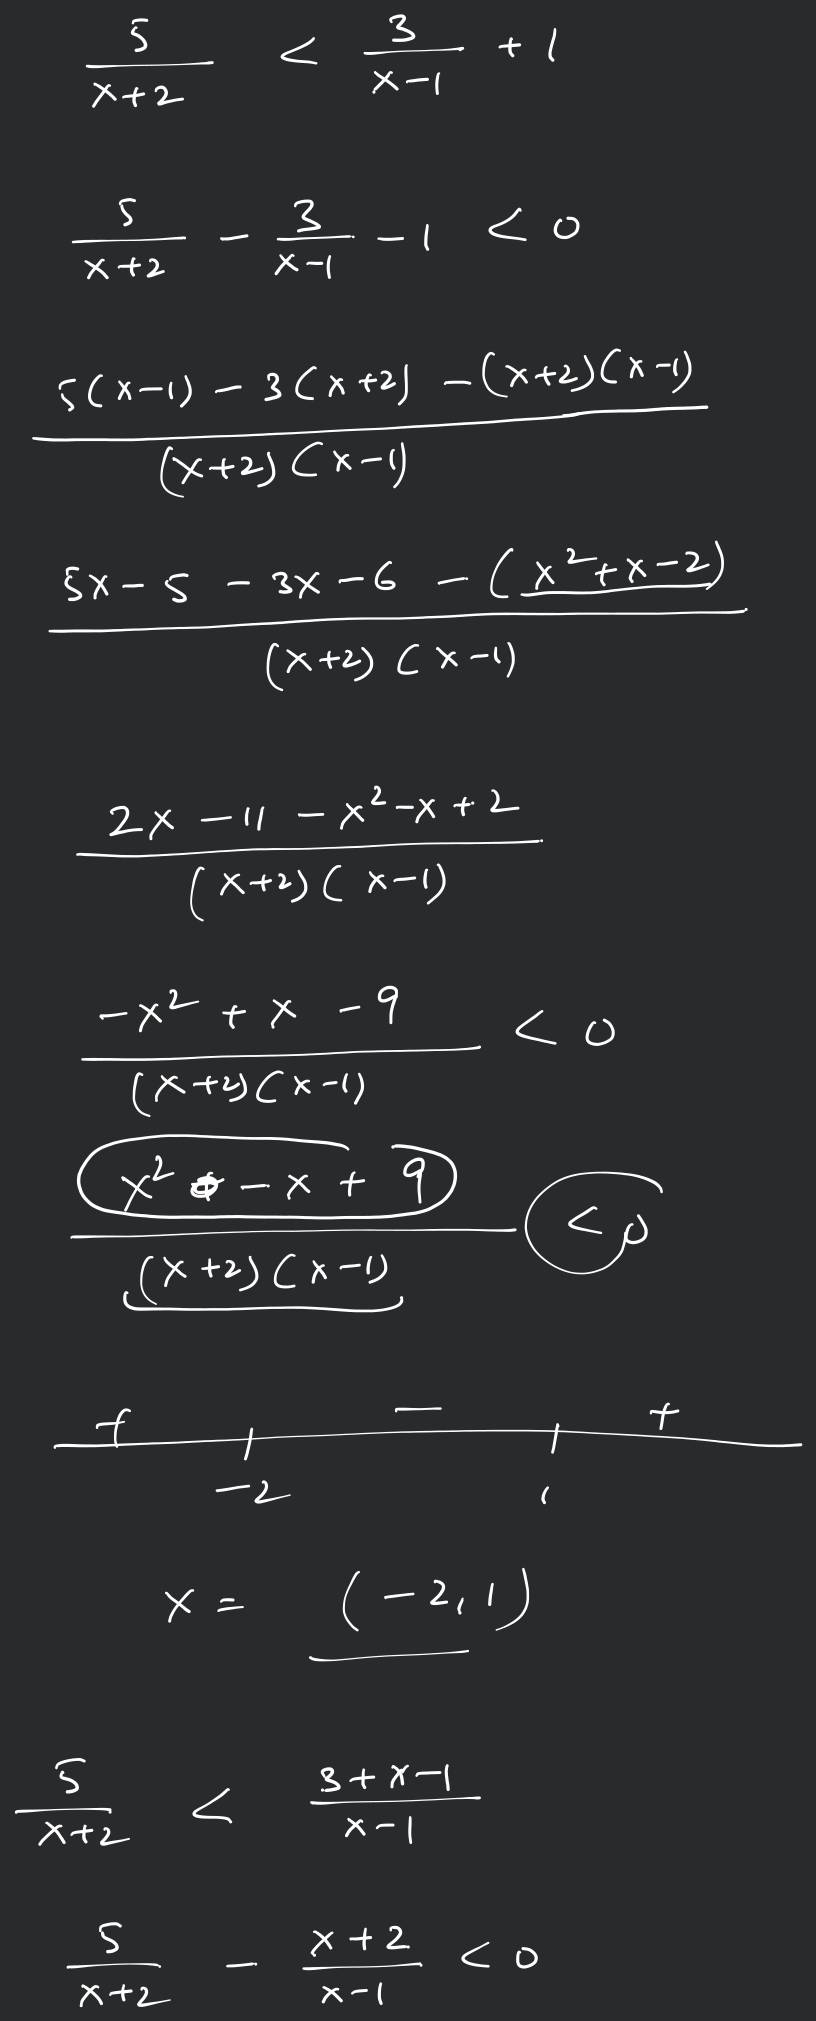 5/(x+2) < 3/(x-1) + 1
5/(x+2) - 3/(x-1) - 1 < 0
(5(x-1) - 3(x+2) - (x+2)(x-1))/((x+2)(x-1))
(5x - 5 - 3x - 6 - (x² + x - 2))/((x+2)(x-1))
(2x - 11 - x² - x + 2)/((x+2)(x-1))
(-x² + x - 9)/((x+2)(x-1)) < 0
(x² - x + 9)/((x+2)(x-1)) < 0
+ − +
-2 1
x = (-2, 1)
5/(x+2) < (3+x-1)/(x-1)
5/(x+2) - (x+2)/(x-1) < 0